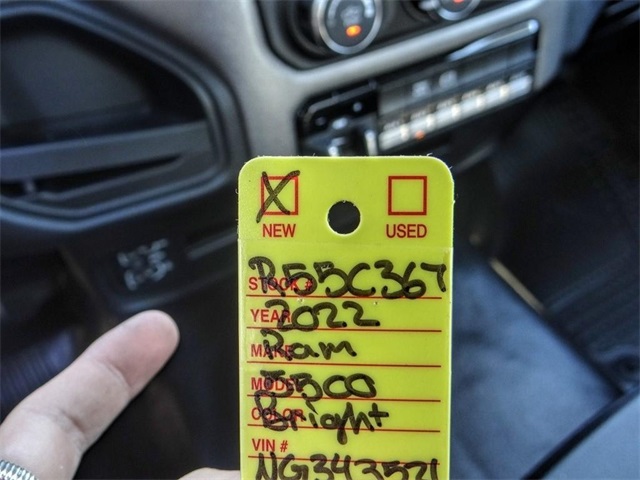 X
NEW USED
STOCK # R55C367
YEAR 2022
MAKE Ram
MODEL 5500
COLOR Bright
VIN # NG343521